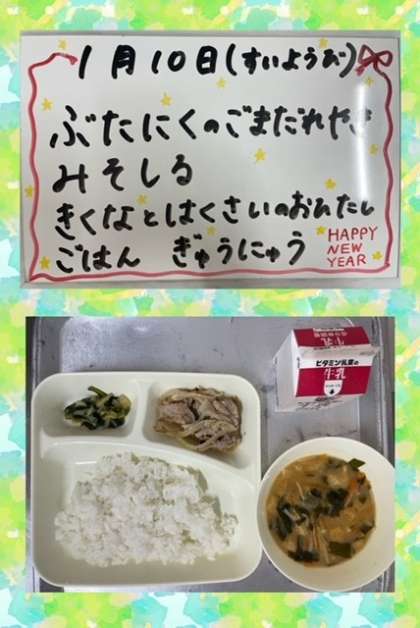 1月10日(すいようび)
ぶたにくのごまだれやき
みそしる
きくなとはくさいのおひたし
ごはん ぎゅうにゅう
HAPPY
NEW
YEAR
牛乳
ビタミン乳業の
牛乳